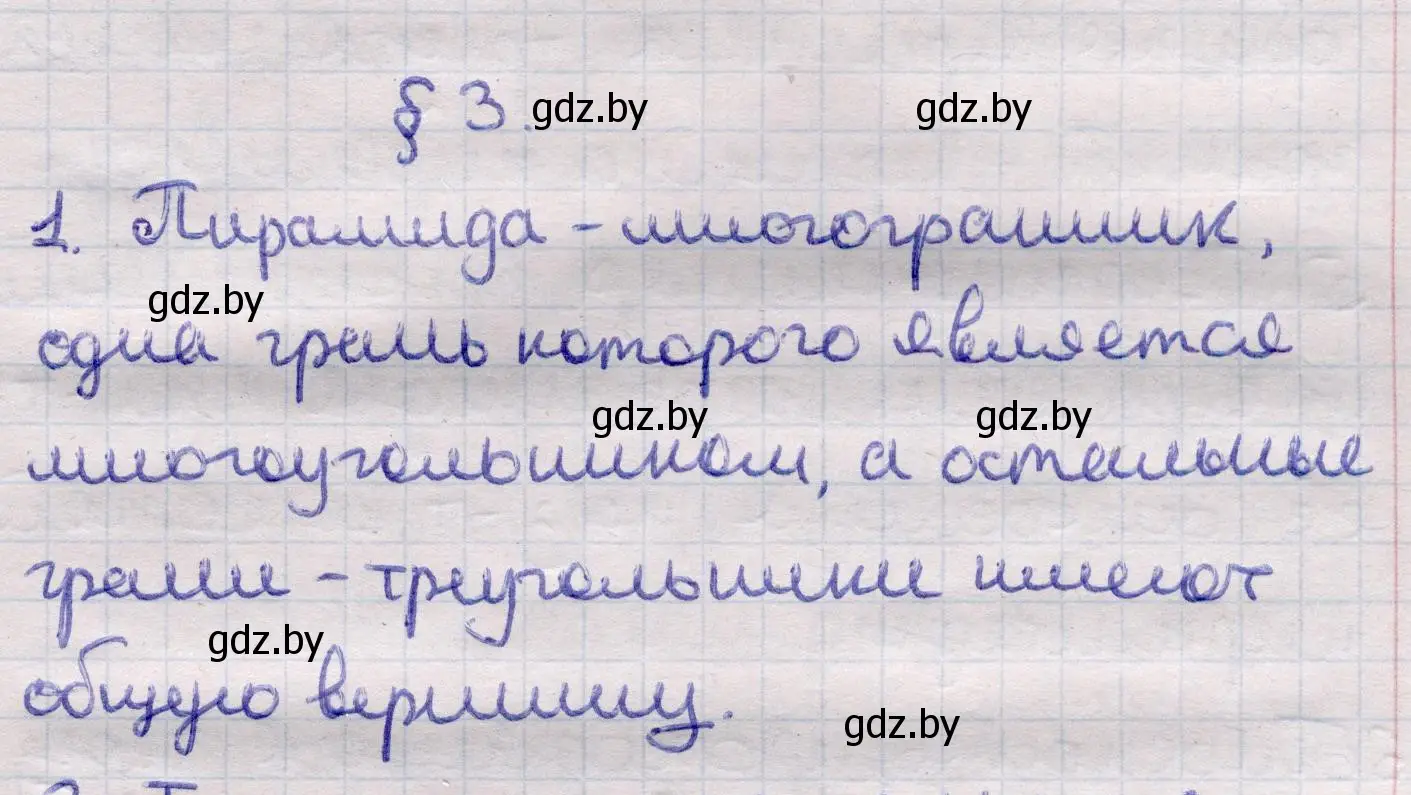 § 3. gdz.by gdz.by
1. Пирамида - многогранник,
gdz.by
одна грань которого является
gdz.by gdz.by
многоугольником, а остальные
грани - треугольники имеют
gdz.by
общую вершину.
gdz.by